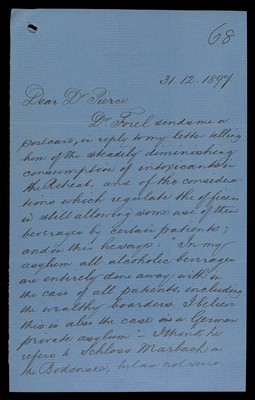 68
31.12.1897
Dear Dr Pierce
Dr Forel sends me a
postcard, in reply to my letter telling
him of the steadily diminishing
consumption of intoxicants in
the Retreat, and of the considera-
tions which regulate the officers
in still allowing some use of these
beverages by certain patients;
and in this he says: "In my
asylum all alcoholic beverages
are entirely done away with in
the case of all patients, including
the wealthy boarders. I believe
this is also the case in a German
private asylum" – I think he
refers to Schloss Marbach on
the Bodensee, but